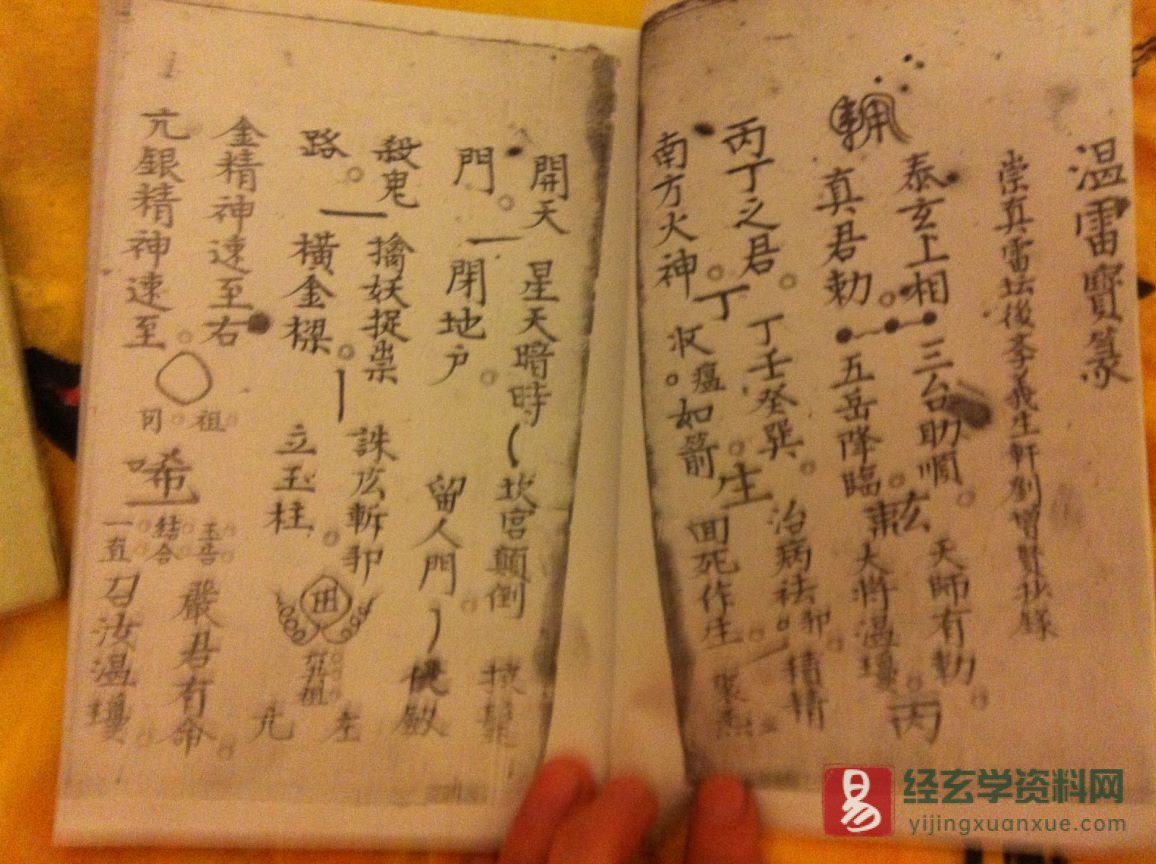 温雷寶篆
崇真雷坛後義生軒劉增賢抄錄
泰玄上相 三台助順 天師有勅
真君勅 五岳降臨 大將温瓊 丙
丙丁之君 丁 丁壬癸巽 生 治病祛邪
南方火神 收瘟如箭 囬死作生
開天 星天暗時 坎宫顛倒
門 閉地户 留人門
殺鬼 擒妖捉祟 誅 斬 左
路 橫金樑 立玉柱 亢
金精神速至右 祖 嚴君有命
亢銀精神速至 司 唏 結合 一直 召汝温瓊
易 经玄学资料网
yijingxuanxue.com